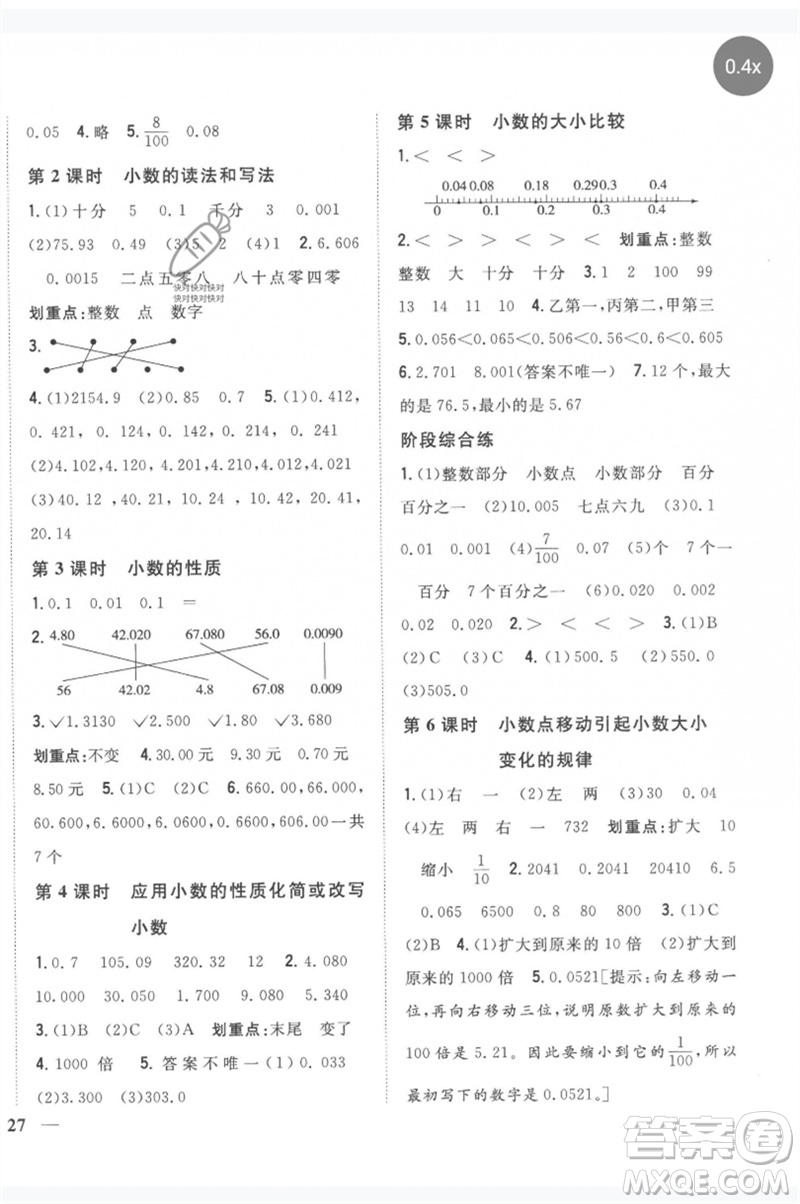 0.4x
0.05 4.略 5.8/100 0.08
第 2 课时 小数的读法和写法
1.(1)十分 5 0.1 千分 3 0.001
(2)75.93 0.49 (3)5 2 (4)1 2.6.606
0.0015 二点五零八 八十点零四零
快对快对快对
快对快对快对
划重点:整数 点 数字
3.
4.(1)2154.9 (2)245.19 5.(1)0.412,
0. 421, 0. 124, 0. 142, 0. 214, 0. 241
(2)4.102,4.120,4.012,4.021,4.210,4.201
(3)40.12, 40.21, 10.24 , 10.42, 20.41,
20.14
第 3 课时 小数的性质
1.0.1 0.01 0.1 =
2. 4.80 42.020 67.080 56.0 0.0090
56 42.02 4.8 67.08 0.009
3.✓1.3130 ✓2.500 ✓9.880 ✓3.680
划重点:不变 4.30.00 元 9.30 元 0.70 元
8.50 元 5.(1)C (2)C 6.660.00, 66.000,
60.600,6.6000,6.0600,0.6600,0.0660一共
7 个
第 4 课时 应用小数的性质化简或改写
小数
1.0.7 105.09 320.32 12 2.4.200
10.000 30.050 1.700 9.080 5.340
3.(1)B (2)C (3)A 划重点:末尾 变了
4.1000 倍 5. 答案不唯一(1)0.033
(2)3.300 (3)303.0
27
第 5 课时 小数的大小比较
1.< < >
0.04 0.08 0.18 0.29 0.3 0.4
0 0.1 0.2 0.3 0.4
2.< > > > < > 划重点:整数
整数 大 十分 十分 3.1 100 99
13 14 11 10 4.乙第一,丙第二,甲第三
5.0.056<0.065<0.506<0.56<0.6<0.605
6.2.701 8.001(答案不唯一) 7.12个,最大
的是 76.5,最小的是 5.67
阶段综合练
1.(1)整数部分 小数点 小数部分 百分
百分之一 (2)10.005 七点六九 (3)0.1
0.01 0.001 (4)7/100 0.07 (5)个 一
百分 7 个百分之一 (6)0.020 0.002
0.02 0.020 2.> < < > 3.(1)B
(2)C (3)C 4.(1)500.5 (2)055.0
(3)505.0
第 6 课时 小数点移动引起小数大小
变化的规律
1.(1)右 一 (2)左 两 (3)30 0.04
(4)左 两 右 一 732 划重点:扩大 10
缩小 1/10 2.2041 0.2041 20410 6.5
0.065 6500 0.0065 0.65 3.(1)C
(2)B 4.(1)扩大到原来的10倍 (2)扩大到
原来的 1000 倍 5.0.0521[提示:向左移动一
位,再向右移动三位,说明原数扩大到原来的
100倍是 5.21。因此要缩小到它的1/100,所以
最初写下的数字是 0.0521。]
答案圈
MXQE.COM